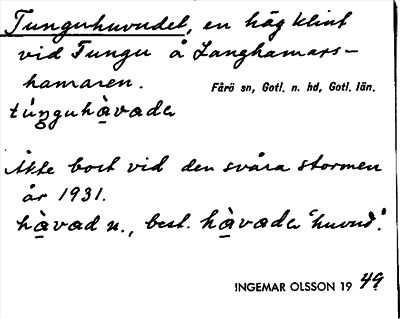 Tunguhuvudet, en hög klint
vid Tungu å Langhamars-
hamaren.
Fårö sn, Gotl. n. hd, Gotl. län.
túŋguhàvadə
Åkte bort vid den svåra stormen
år 1931.
hàvad n., best. hàvadə 'huvud'.
INGEMAR OLSSON 19 49